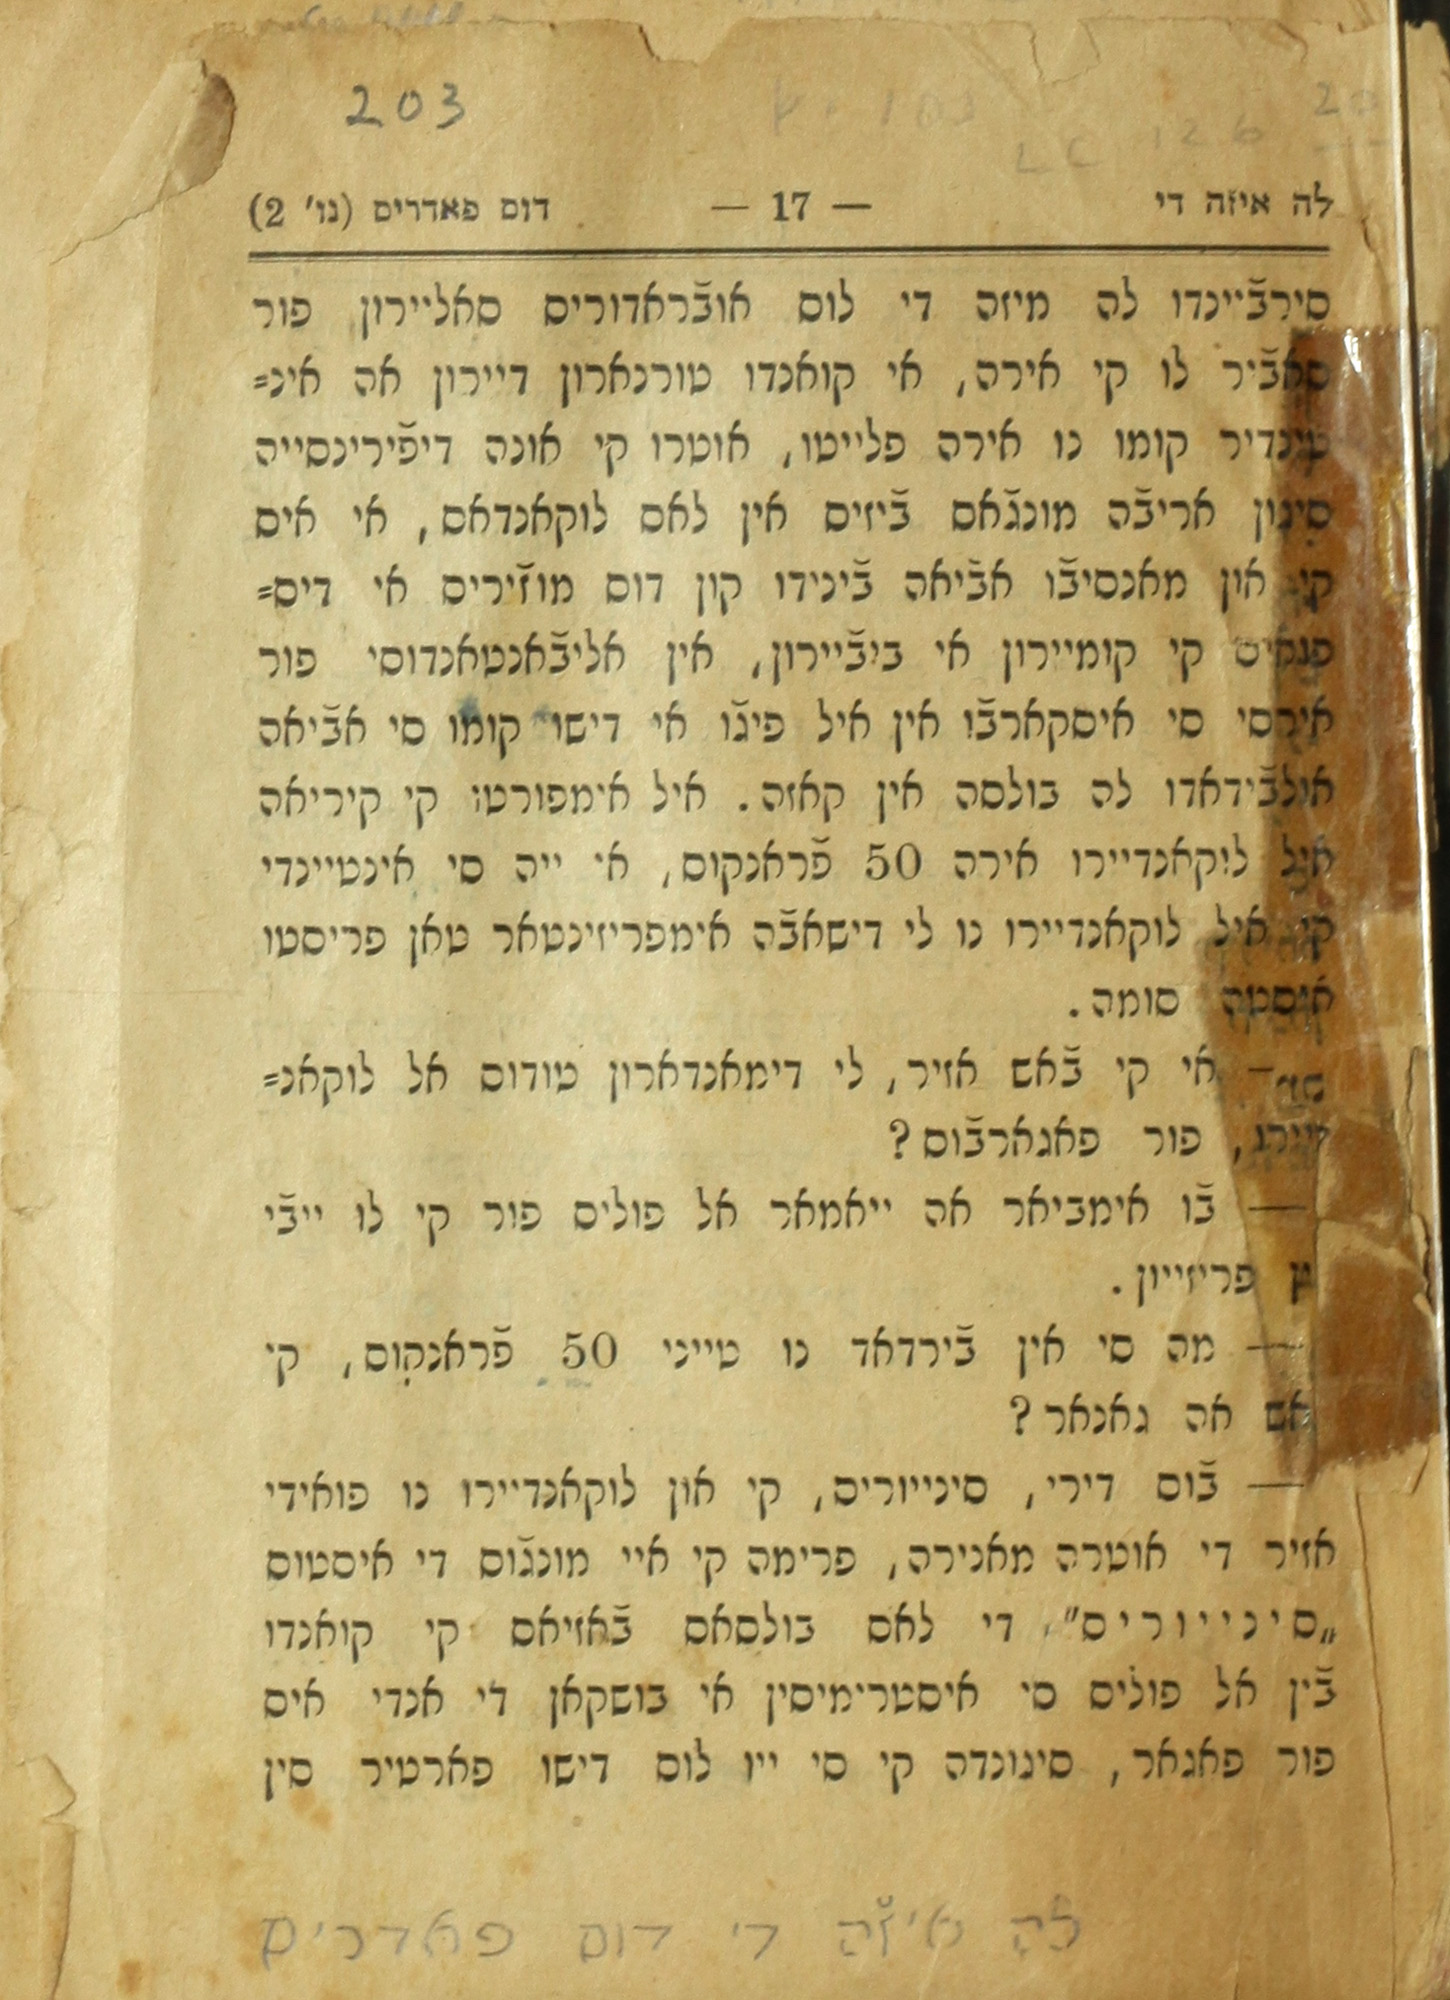 203
לה איזה די — 17 — דוס פאדריס (נו' 2)
סירב̆יינדו לה מיזה די לוס אוב̆ראדוריס סאליירון פור
סאב̆יר לו קי אירה, אי קואנדו טורנארון דיירון אה אינ=
טינדיר קומו נו אירה פלייטו, אוטרו קי אונה דיפ̆ירינסייה
סיגון אריב̆ה מונג̆אס ב̆יזיס אין לאס לוקאנדאס, אי איס
קי און מאנסיב̆ו אב̆יאה ב̆ינידו קון דוס מוז̆יריס אי דיס=
פואיס קי קומיירון אי ביב̆יירון, אין אליב̆אנטאנדוסי פור
אירסי סי איסקארב̆ו אין איל פיג̆ו אי דישו קומו סי אב̆יאה
אולב̆ידאדו לה בולסה אין קאזה. איל אימפורטו קי קיריאה
איל לוקאנדיירו אירה 50 פ̆ראנקוס, אי ייה סי אינטיינדי
קי איל לוקאנדיירו נו לי דישאב̆ה אימפריזינטאר טאן פריסטו
איסטה סומה.
— אי קי ב̆אש אזיר, לי דימאנדארון טודוס אל לוקאנ=
פור פאגארב̆וס?
— ב̆ו אימביאר אה ייאמאר אל פוליס פור קי לו ייב̆י
פריזייון.
— מה סי אין ב̆ירדאד נו טייני 50 פ̆ראנקוס, קי
אה גאנאר?
— ב̆וס דירי, סינייוריס, קי און לוקאנדיירו נו פואידי
אזיר די אוטרה מאנירה, פרימה קי איי מונג̆וס די איסטוס
„סינייוריס" די לאס בולסאס ב̆אזיאס קי קואנדו
ב̆ין אל פוליס סי איסטרימיסין אי בושקאן די אנדי איס
פור פאגאר, סיגונדה קי סי ייו לוס דישו פארטיר סין
לה איז̆ה די דוס פאדריס